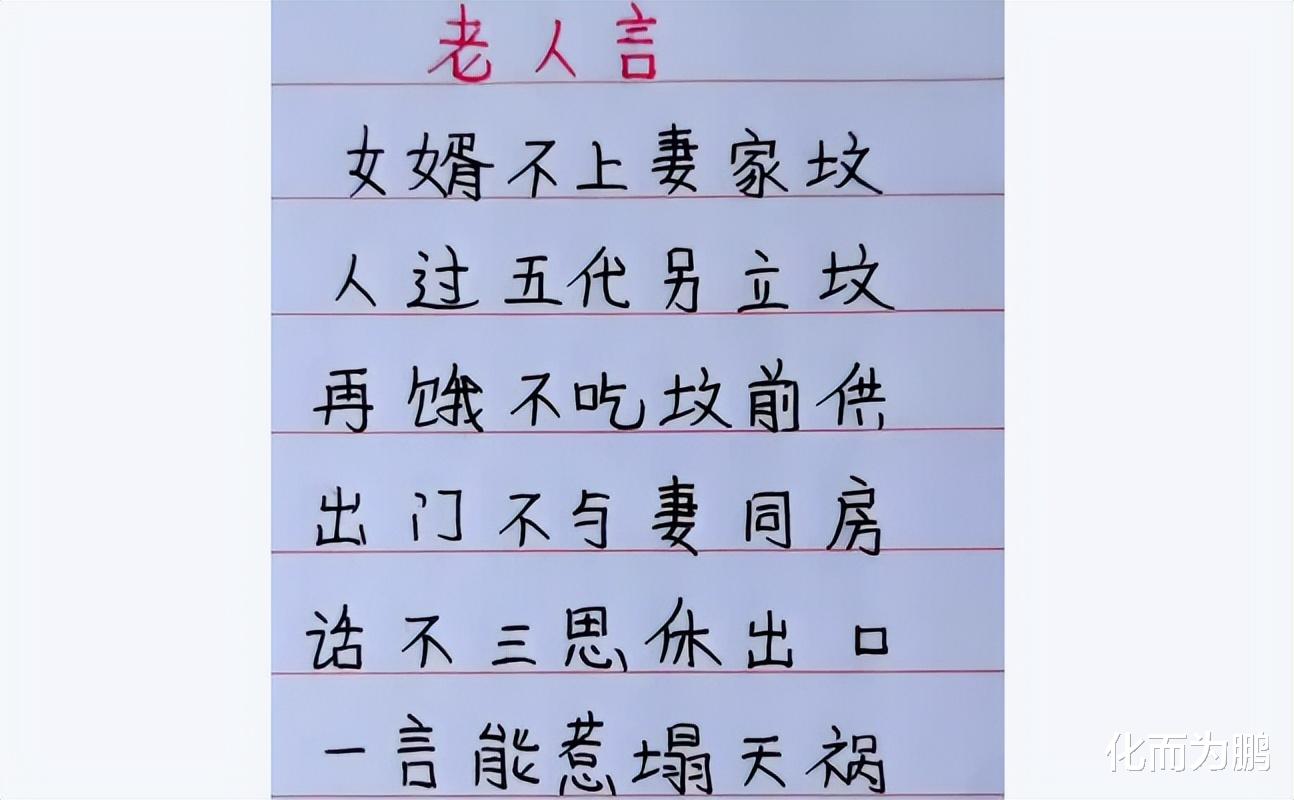 老人言
女婿不上妻家坟
人过五代另立坟
再饿不吃坟前供
出门不与妻同房
话不三思休出口
一言能惹塌天祸
化而为鹏